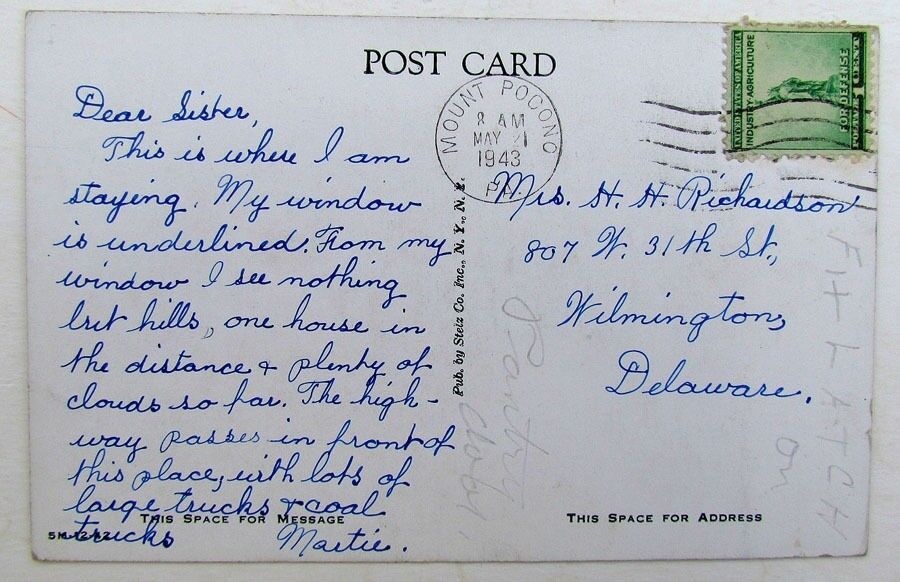 POST CARD
Dear Sister,
This is where I am
staying. My window
is underlined. From my
window I see nothing
but hills, one house in
the distance & plenty of
clouds so far. The high-
way passes in front of
this place, with lots of
large trucks & coal
trucks
Martie.
THIS SPACE FOR MESSAGE
Pub. by Stelz Co. Inc., N. Y., N. Y.
MOUNT POCONO
8 AM
MAY 21
1943
PA.
UNITED STATES OF AMERICA
INDUSTRY AGRICULTURE
FOR DEFENSE
POSTAGE 1 CENT
Mrs. H. H. Richardson
807 W. 31th St.,
Wilmington,
Delaware.
Pantry
door
on
THIS SPACE FOR ADDRESS